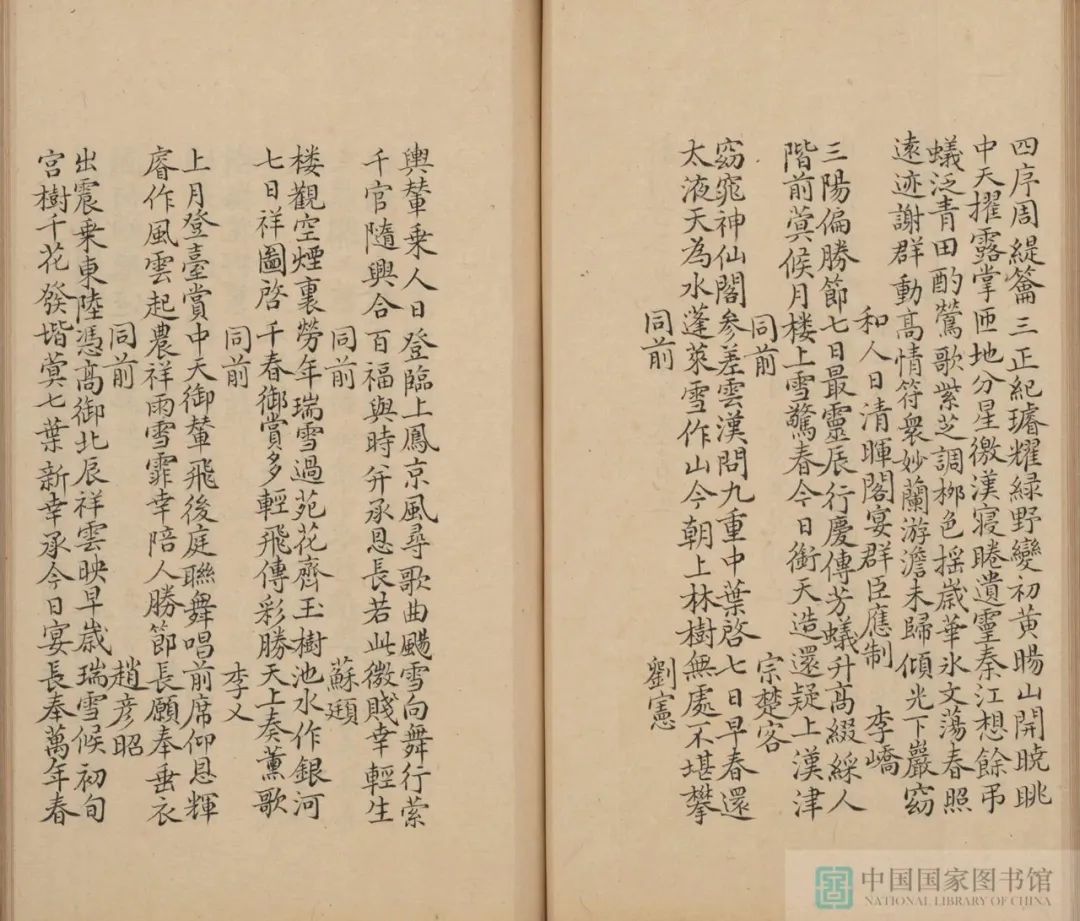 四序周緹籥三正紀璿耀緑野變初黄暘山開曉眺
中天擢露掌匝地分星徼漢寝睠遺靈秦江想餘弔
蟻泛青田酌鶯歌紫芝調栁色揺歳華氷文蕩春照
遠迹謝群動高情符衆妙蘭游澹未歸傾光下巖窈
和人日清暉閣宴群臣應制 李嶠
三陽偏勝節七日最靈辰行慶傳芳蟻升高綴綵人
階前蓂候月楼上雪驚春今日銜天造還疑上漢津
同前 宗楚客
窈窕神仙閣参差雲漢問九重中葉啓七日早春還
太液天為水蓬萊雪作山今朝上林樹無處不堪攀
同前 劉憲
輿輦乗人日登臨上鳳京風尋歌曲颺雪向舞行縈
千官隨興合百福與時并承恩長若此微賤幸輕生
同前 蘇頲
楼觀空煙裏勞年瑞雪過苑花齊玉樹池水作銀河
七日祥圖啓千春御賞多輕飛傳彩勝天上奏薰歌
同前 李乂
上月登臺賞中天御輦飛後庭聯舞唱前席仰恩輝
睿作風雲起農祥雨雪霏幸陪人勝節長願奉垂衣
同前 趙彦昭
出震乗東陸憑高御北辰祥雲映早歳瑞雪候初旬
宫樹千花發堦蓂七葉新幸承今日宴長奉萬年春
中国国家图书馆
NATIONAL LIBRARY OF CHINA